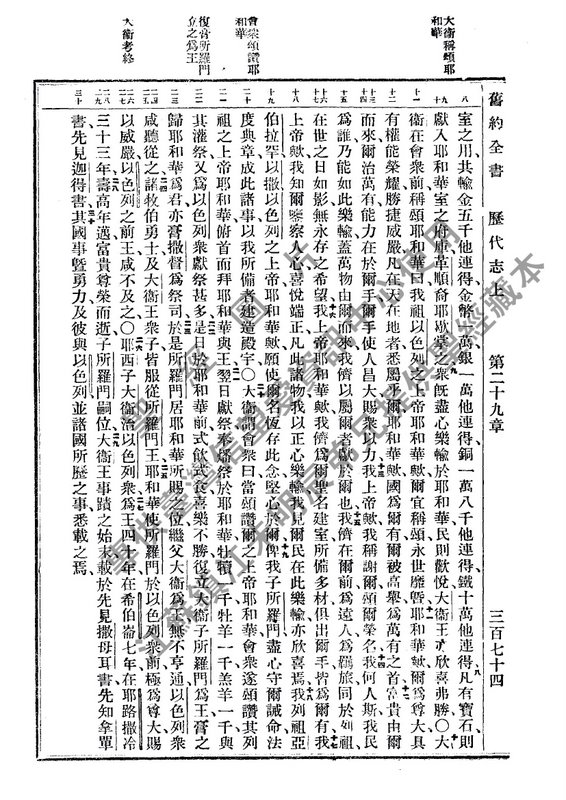 舊約全書 歷代志上 第二十九章 三百七十四
大衛稱頌耶和華
會衆頌讚耶和華
復膏所羅門立之爲王
大衛考終
室之用共輸金五千他連得金幣一萬銀一萬他連得銅一萬八千他連得鐵十萬他連得凡有寶石則
獻入耶和華室之府庫革順裔耶歇掌之衆旣盡心樂輸於耶和華民則歡悅大衛王亦欣喜弗勝○大
衛在會衆前稱頌耶和華曰我祖以色列之上帝耶和華歟爾宜稱頌永世靡曁耶和華歟爾爲尊大具
有權能榮耀勝捷威嚴凡在天在地者悉屬乎爾耶和華歟國爲爾有爾被高舉爲萬有之首富貴由爾
而來爾治萬有能力在於爾手爾手使人昌大賜衆以力我上帝歟我稱謝爾頌爾榮名我何人斯我民
爲誰乃能如此樂輸蓋萬物由爾而來我儕以屬爾者獻於爾也我儕在爾前爲遠人爲羈旅同於列祖
在世之日如影無永存之希望我上帝耶和華歟我儕爲爾聖名建室所備多材俱出爾手皆爲爾有我
上帝歟我知爾鑒察人心喜悅端正凡此諸物我以正心樂輸我見爾民在此樂輸亦欣喜焉我列祖亞
伯拉罕以撒以色列之上帝耶和華歟願使爾名恆存此念堅心於爾俾我子所羅門盡心守爾誡命法
度典章成此諸事以我所備者建造殿宇○大衛謂會衆曰當頌讚爾之上帝耶和華會衆遂頌讚其列
祖之上帝耶和華俯首而拜耶和華與王翌日獻祭奉燔祭於耶和華牡犢一千牡羊一千羔羊一千與
其灌祭又爲以色列衆獻祭甚多是日於耶和華前式飲式食喜樂不勝復立大衛子所羅門爲王膏之
歸耶和華爲君亦膏撒督爲祭司於是所羅門居耶和華所賜之位繼父大衛爲王無不亨通以色列衆
咸聽從之諸牧伯勇士及大衛王衆子皆服從所羅門王耶和華使所羅門於以色列衆前極爲尊大賜
以威嚴以色列之前王咸不及之○耶西子大衛治以色列衆爲王四十年在希伯崙七年在耶路撒冷
三十三年壽高年邁富貴尊榮而逝子所羅門嗣位大衛王事蹟之始末載於先見撒母耳書先知拿單
書先見迦得書其國事曁勇力及彼與以色列並諸國所歷之事悉載之焉